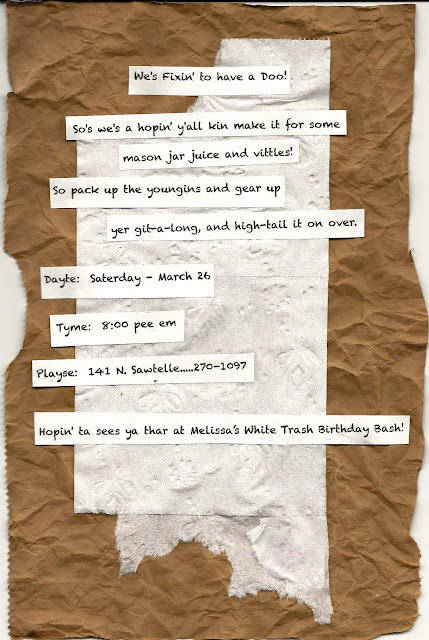 We's Fixin' to have a Doo!
So's we's a hopin' y'all kin make it for some
mason jar juice and vittles!
So pack up the youngins and gear up
yer git-a-long, and high-tail it on over.
Dayte: Saterday - March 26
Tyme: 8:00 pee em
Playse: 141 N. Sawtelle.....270-1097
Hopin' ta sees ya thar at Melissa's White Trash Birthday Bash!